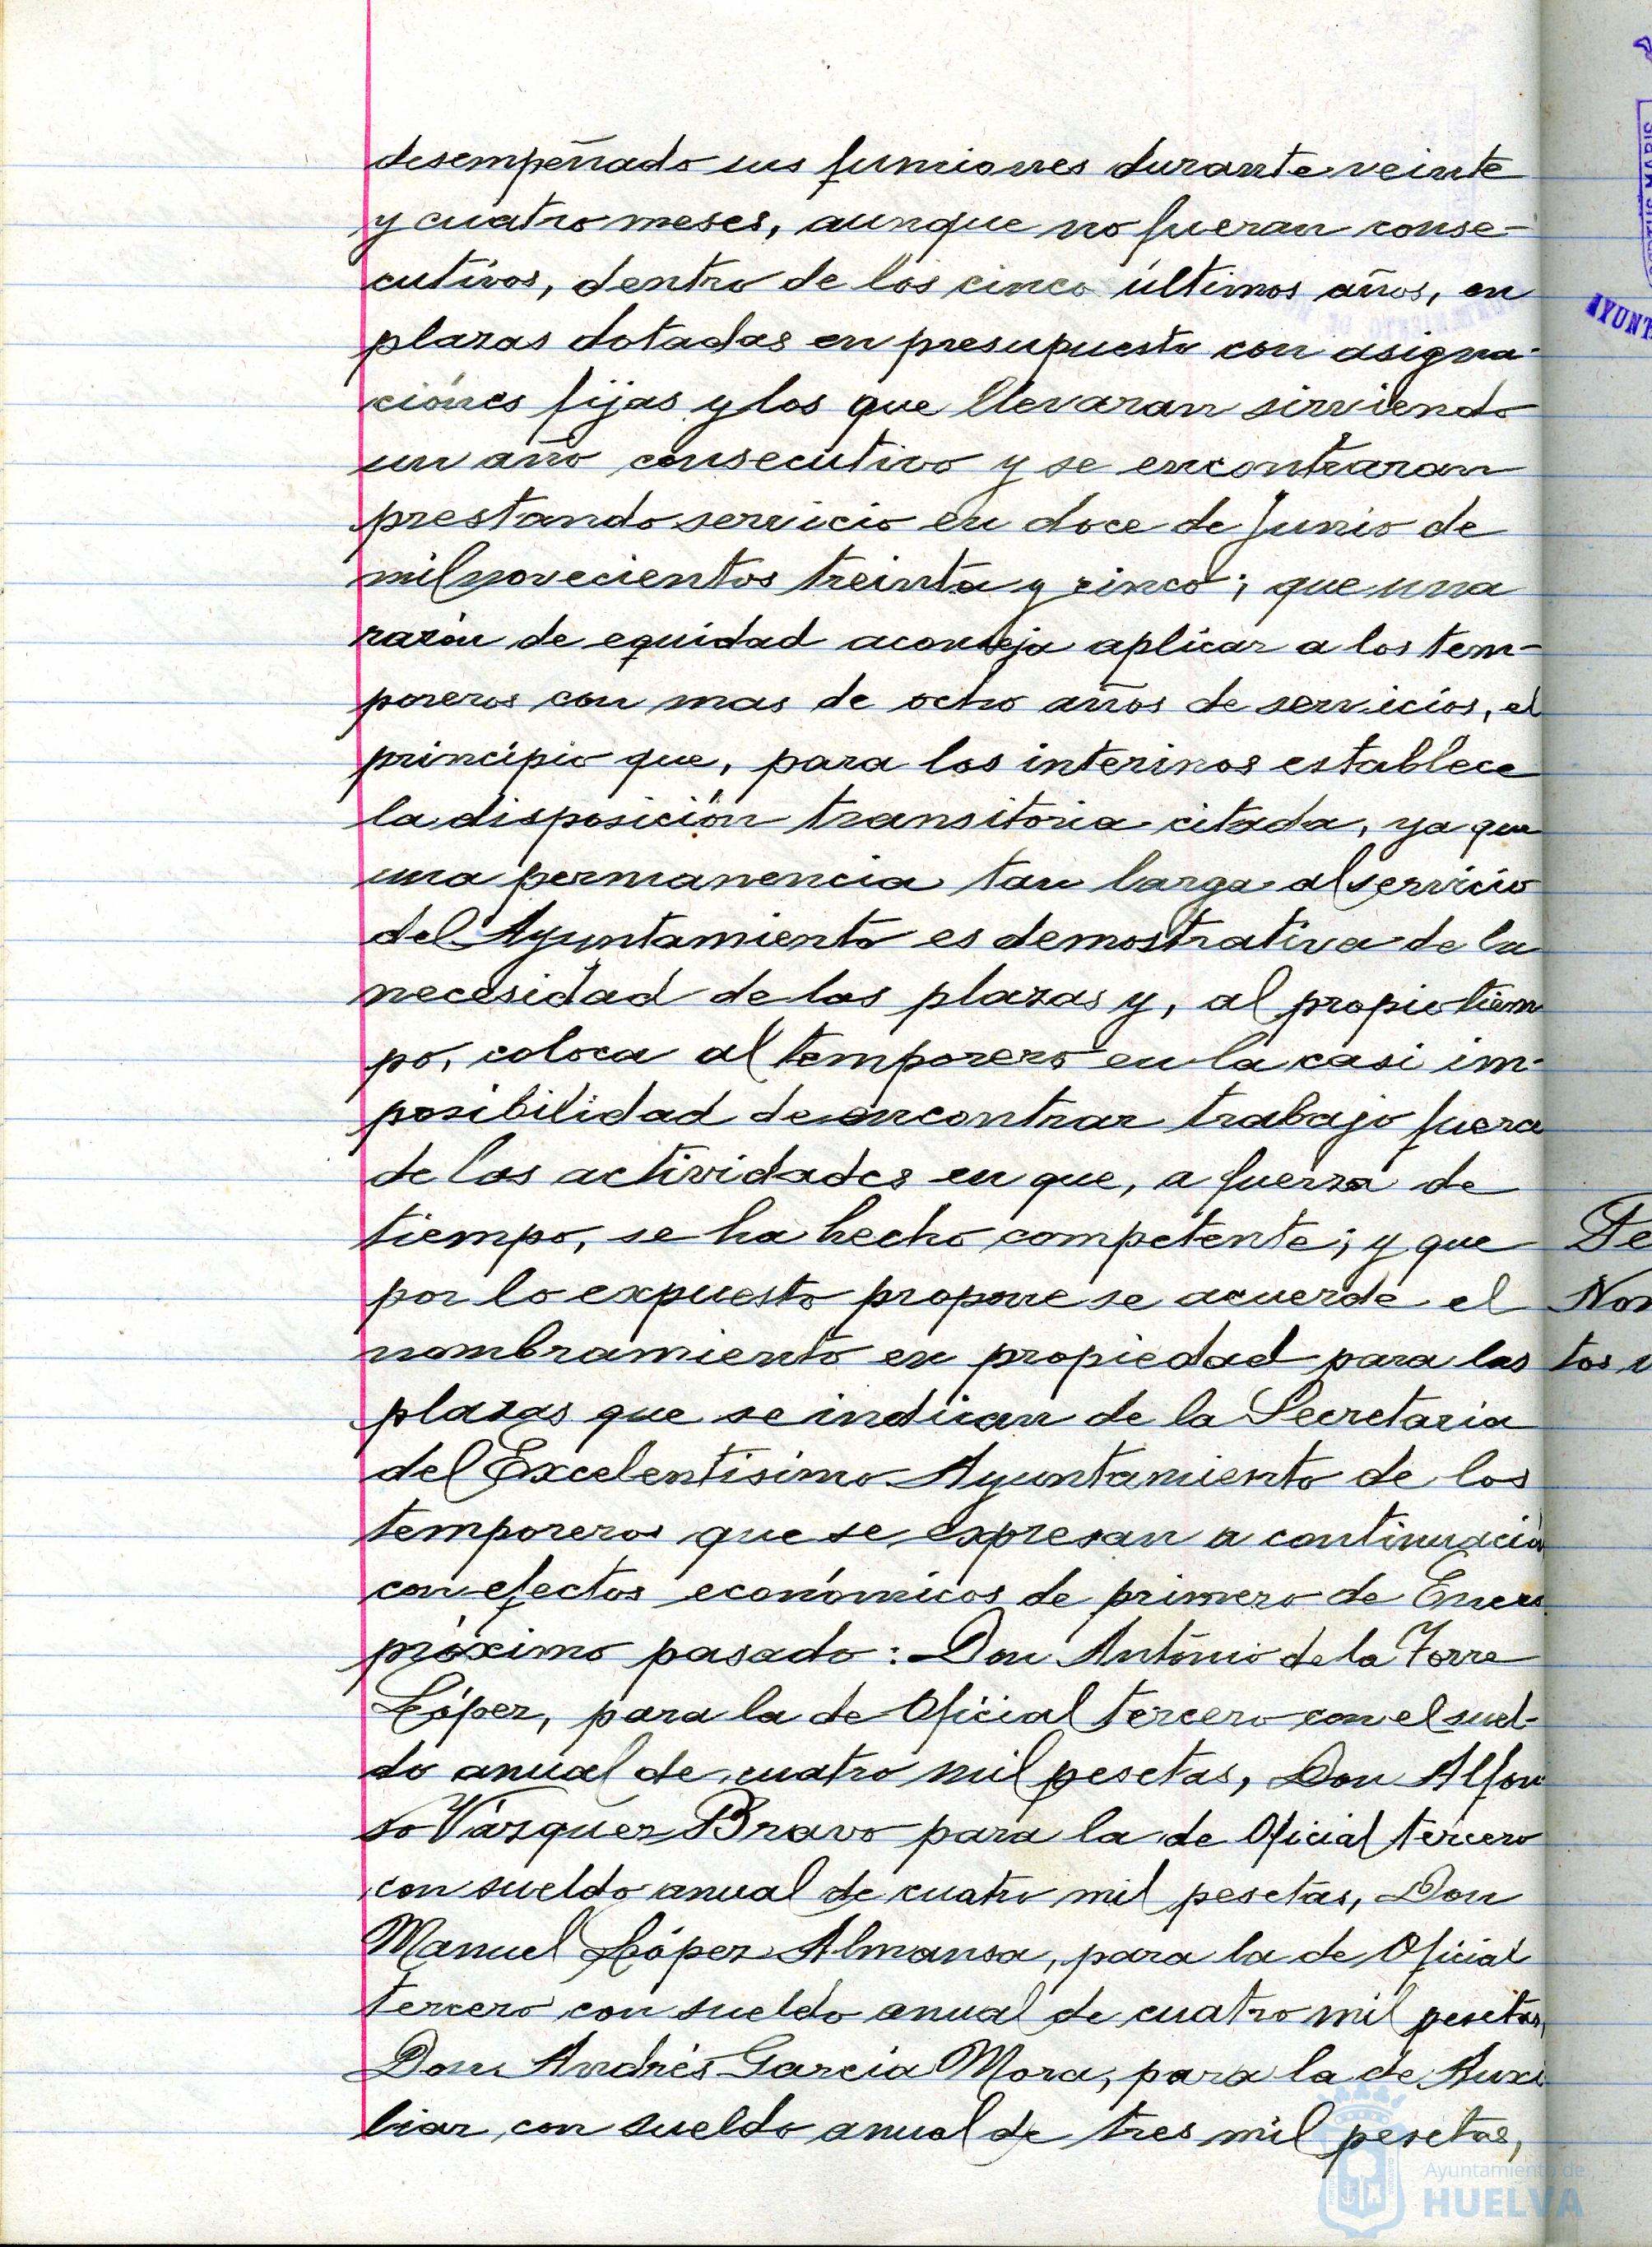 desempeñado sus funciones durante veinte
y cuatro meses, aunque no fueran conse-
cutivos, dentro de los cinco últimos años, en
plazas dotadas en presupuesto con asigna-
ciónes fijas y los que llevaran sirviendo
un año consecutivo y se encontraran
prestando servicio en doce de Junio de
mil novecientos treinta y cinco; que una
razón de equidad aconseja aplicar a los tem-
poreros con mas de ocho años de servicios, el
principio que, para los interinos establece
la disposición transitoria citada, ya que
una permanencia tan larga al servicio
del Ayuntamiento es demostrativa de la
necesidad de las plazas y, al propio tiem
po, coloca al temporero en la casi im-
posibilidad de encontrar trabajo fuera
de las actividades en que, a fuerza de
tiempo, se ha hecho competente; y que
por lo expuesto propone se acuerde el
nombramiento en propiedad para las
plazas que se indican de la Secretaria
del Excelentisimo Ayuntamiento de los
temporeros que se expresan a continuación
con efectos económicos de primero de Enero
próximo pasado: Don Antonio de la Torre
López, para la de Oficial tercero con el suel-
do anual de cuatro mil pesetas, Don Alfon
so Vázquez Bravo para la de Oficial tercero
con sueldo anual de cuatro mil pesetas, Don
Manuel López Almansa, para la de Oficial
tercero con sueldo anual de cuatro mil pesetas,
Don Andrés Garcia Mora, para la de Auxi
liar con sueldo anual de tres mil pesetas,
De
Nom
tos
PORTUS MARIS
AYUNT
Ayuntamiento de
HUELVA